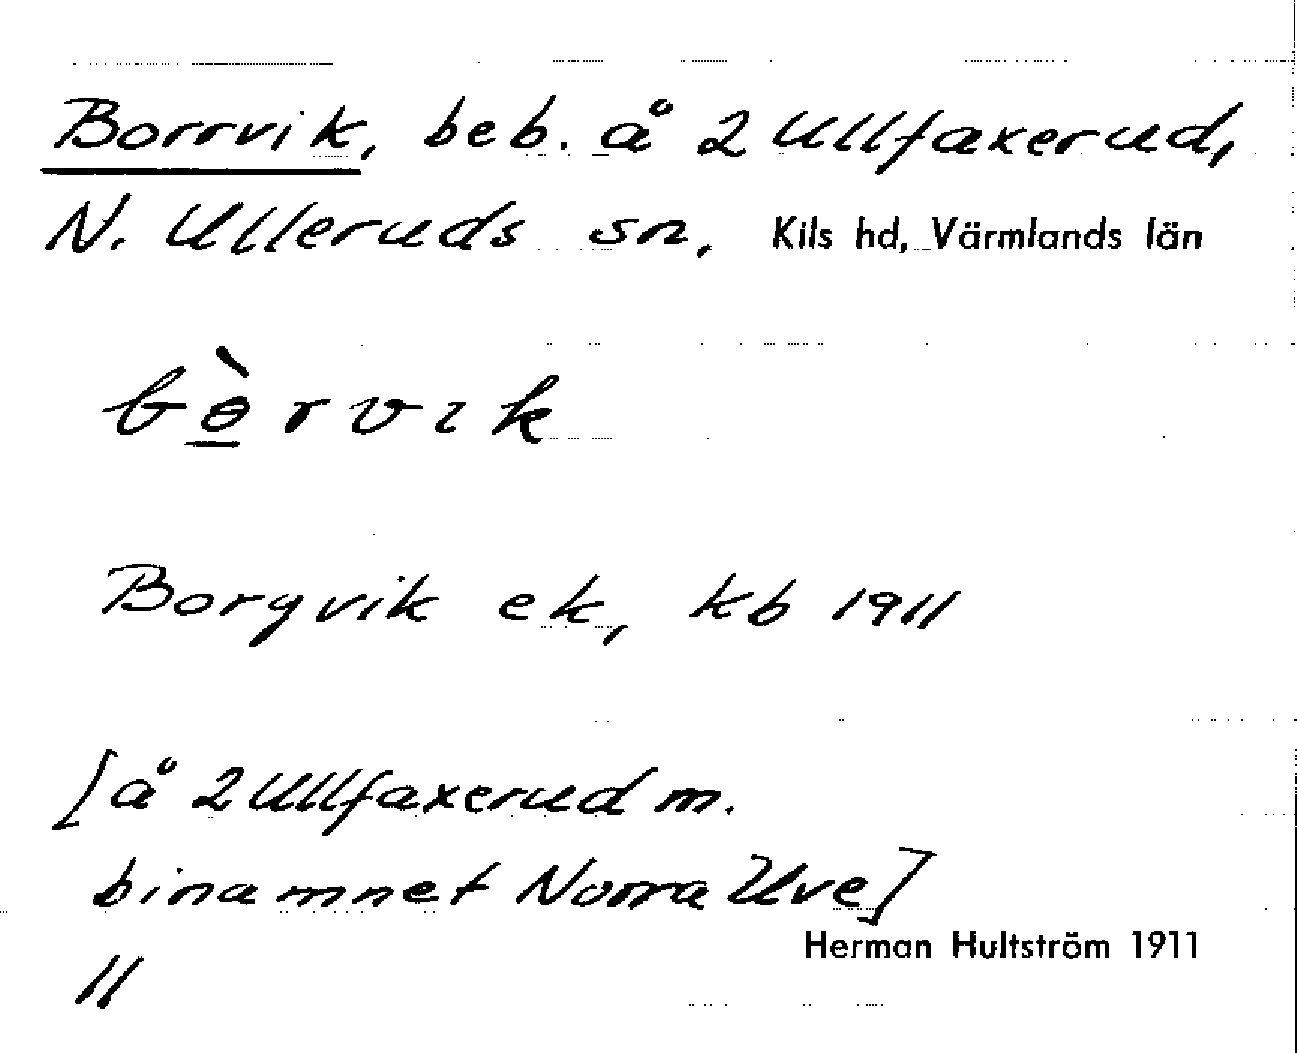 Borrvik, beb. å 2 Ullfaxerud,
N. Ulleruds sn, Kils hd, Värmlands län
bɵ̠̀rvɩk
Borgvik ek, kb 1911
[å 2 Ullfaxerud m.
binamnet Norra Ulve]
Herman Hultström 1911
11